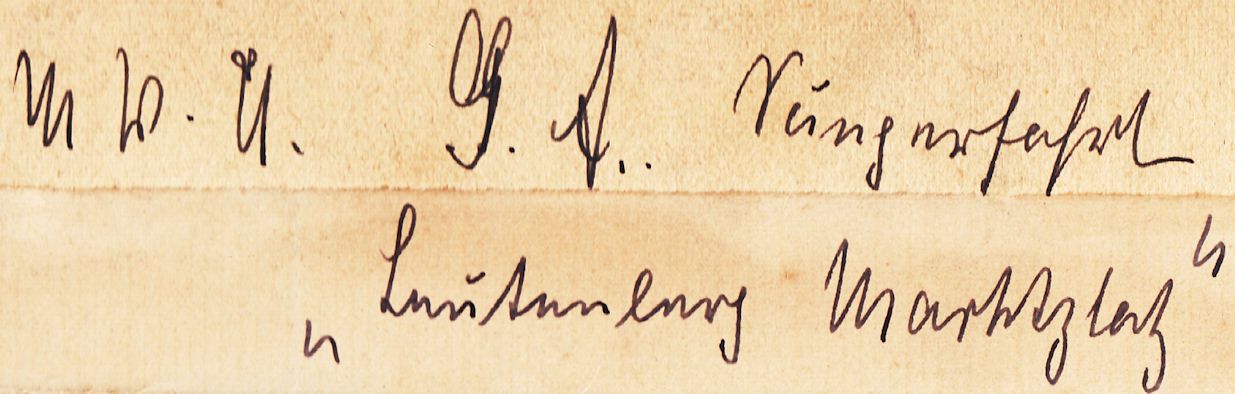 M W. U. G. A.. Sängerfahrt
„Leutenberg Marktplatz“